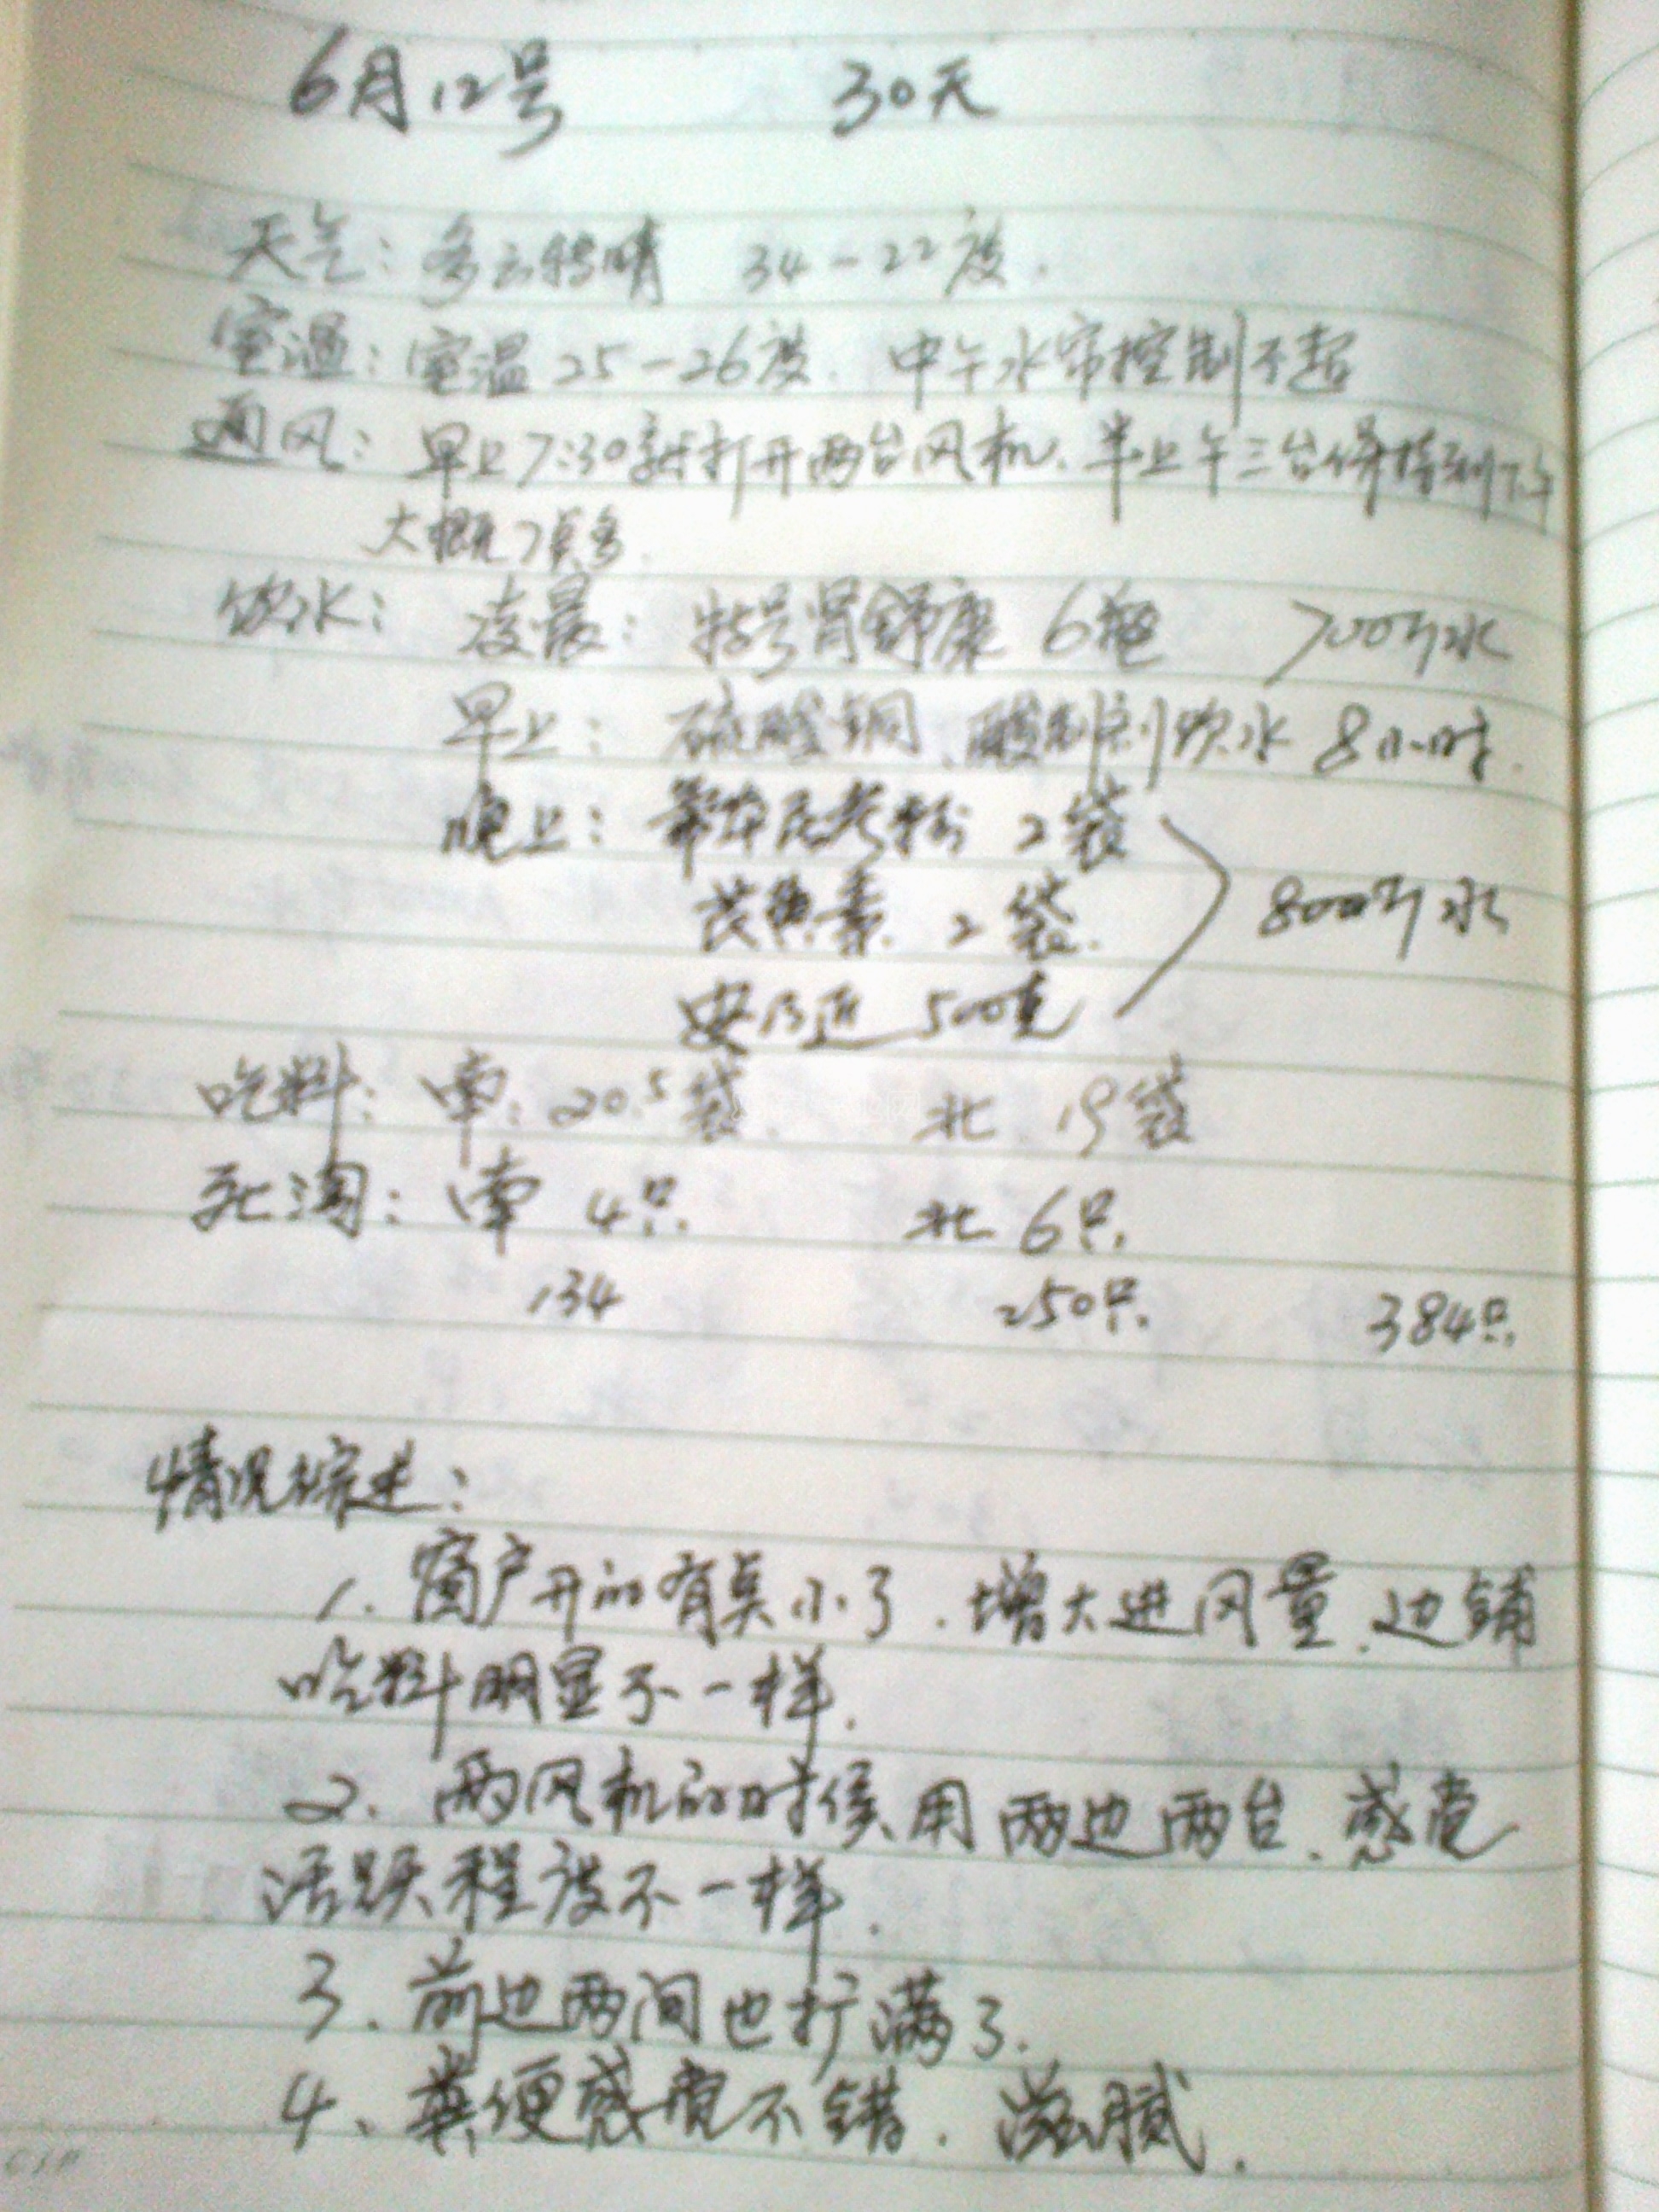 6月12号 30天
天气: 多云转晴 34-22度.
室温: 室温25-26度. 中午水帘控制不起
通风: 早上7:30就打开两台风机. 半上午三台保持到下午
大概7点多.
饮水: 凌晨: 特号肾舒康 6瓶 700斤水
早上: 硫酸铜、酸制剂饮水 8小时.
晚上: 2袋
芪黄素 2袋. 800斤水
安乃近 500克
吃料: 南: 20.5袋. 北 19袋
死淘: 南 4只. 北 6只.
134 250只. 384只.
情况综述:
1. 窗户开的有点小了. 增大进风量. 边铺
吃料明显不一样.
2. 两风机的时候用两边两台. 感觉
活跃程度不一样.
3. 前边两间也扩满了.
4、粪便感觉不错. 滋腻.